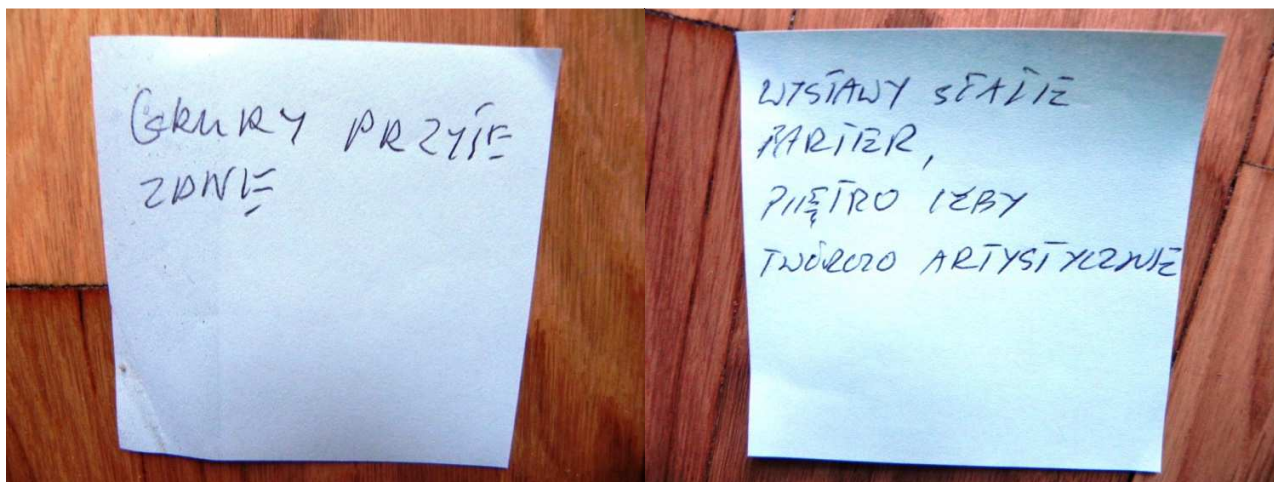 GRURY PRZYIE
ZDNE
WYSTAWY STAŁE
PARTER,
PIĘTRO IZBY
TWÓRCZO ARTYSTYCZNE